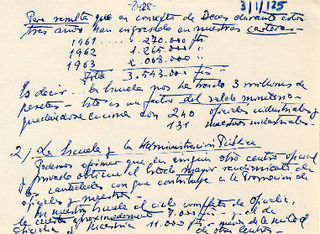 -2128-
3/1/125
Pero resulta que en concepto de Becas durante estos
tres años han ingresado en nuestras carteras
1961 ....... 270.000 pts
1962 ....... 1.265.000 "
1963 ....... 2.008.000 "
3.543.000 pts
Es decir ... la Escuela nos ha traido 3 millones de
pesetas - Este es un factor del saldo monetario -
quedándose encima con 240 oficiales industriales y
131 maestros industriales.
2) La Escuela y la Administración Pública
Podemos afirmar que en ningún otro centro oficial
y privado obtiene el Estado mayor rendimiento de
las cantidades con que contribuye a la Promoción de
oficiales y maestros.
En nuestra Escuela el ciclo completo de oficialía,
le cuesta aproximadamente 7.000 pts - el de
oficialía y maestría 11.000 pts - menos de la mitad
de otros centros.